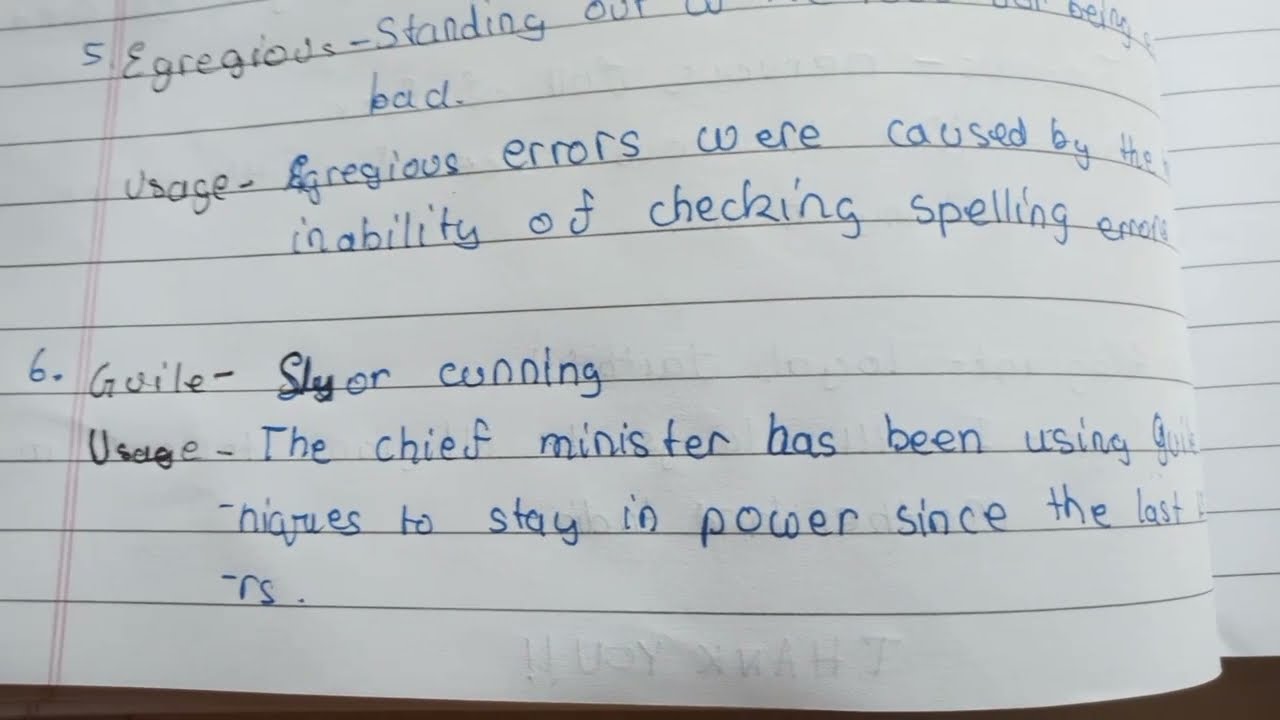 5. Egregious - Standing out being
bad.
Usage - Egregious errors were caused by the
inability of checking spelling errors
6. Guile - Sly or cunning
Usage - The chief minister has been using
-niques to stay in power since the last
-rs.
THANK YOU!!